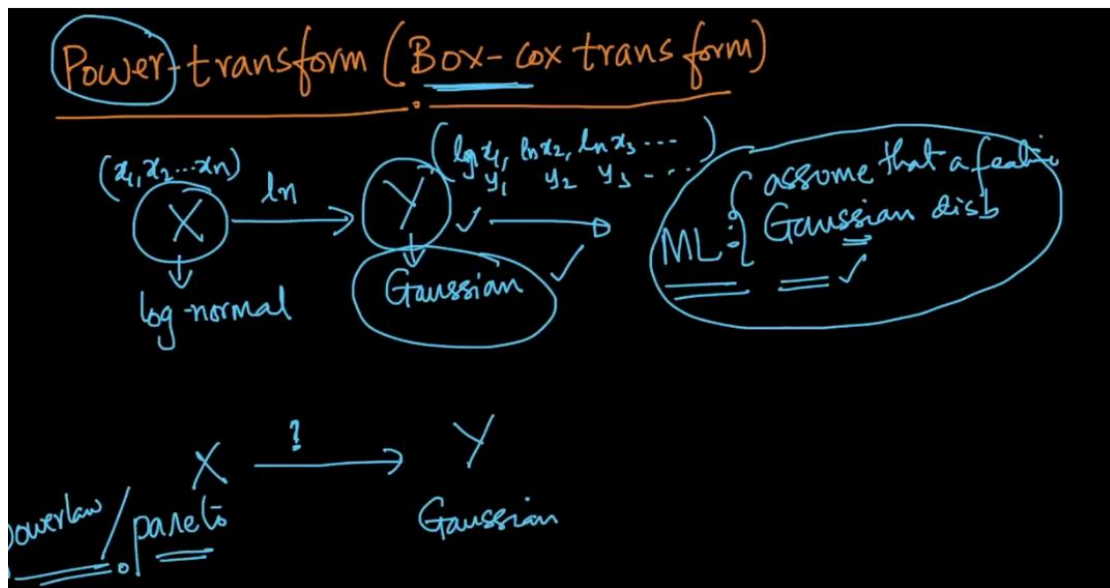 Power-transform (Box-cox transform)
(x1, x2...xn)
ln
(log x1, ln x2, ln x3 ...)
y1 y2 y3 ...
X
Y
log-normal
Gaussian
ML:
assume that a feature
Gaussian disb
X
?
Y
powerlaw/pareto
Gaussian